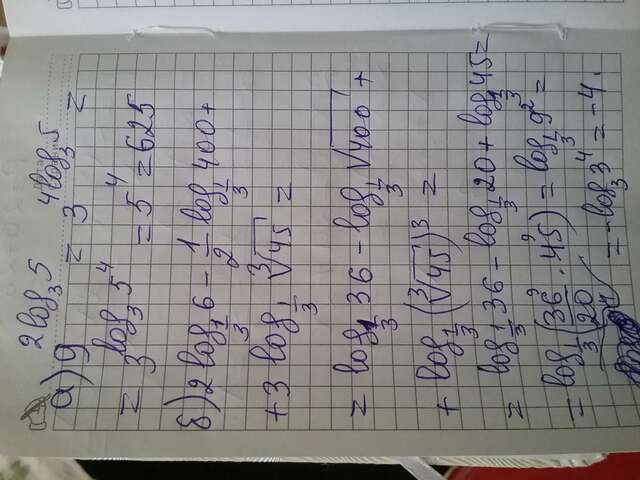 а) 9^(2log_3 5) = 3^(4log_3 5) =
= 3^(log_3 5^4) = 5^4 = 625
б) 2 log_(1/3) 6 - 1/2 log_(1/3) 400 +
+ 3 log_(1/3) ∛45 =
= log_(1/3) 36 - log_(1/3) √400 +
+ log_(1/3) (∛45)^3 =
= log_(1/3) 36 - log_(1/3) 20 + log_(1/3) 45 =
= log_(1/3) (36/20 · 45) = log_(1/3) 9^2 =
= -log_3 3^4 = -4.